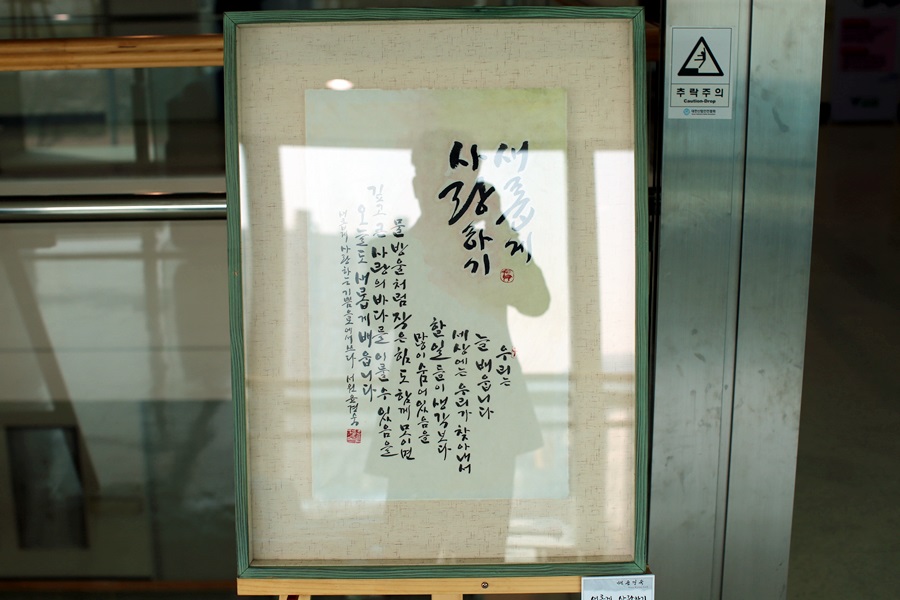 새롭게
사랑하기
우리는
늘 배웁니다
세상에는 우리가 찾아내서
할 일들이 생각보다
많이 숨어있음을
물방울처럼 작은 힘도 함께 모이면
깊고 큰 사랑의 바다를 이룰 수 있음을
오늘도 새롭게 배웁니다
사랑하는 기쁨으로에서 쓰다
추락주의
Caution-Drop
새롭게 사랑하기